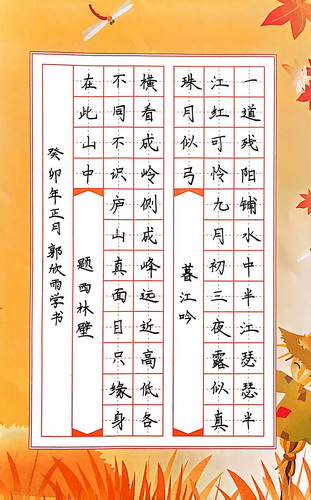 一道残阳铺水中半江瑟瑟半
江红可怜九月初三夜露似真
珠月似弓
暮江吟
横看成岭侧成峰远近高低各
不同不识庐山真面目只缘身
在此山中
题西林壁
癸卯年正月 郭欣雨学书